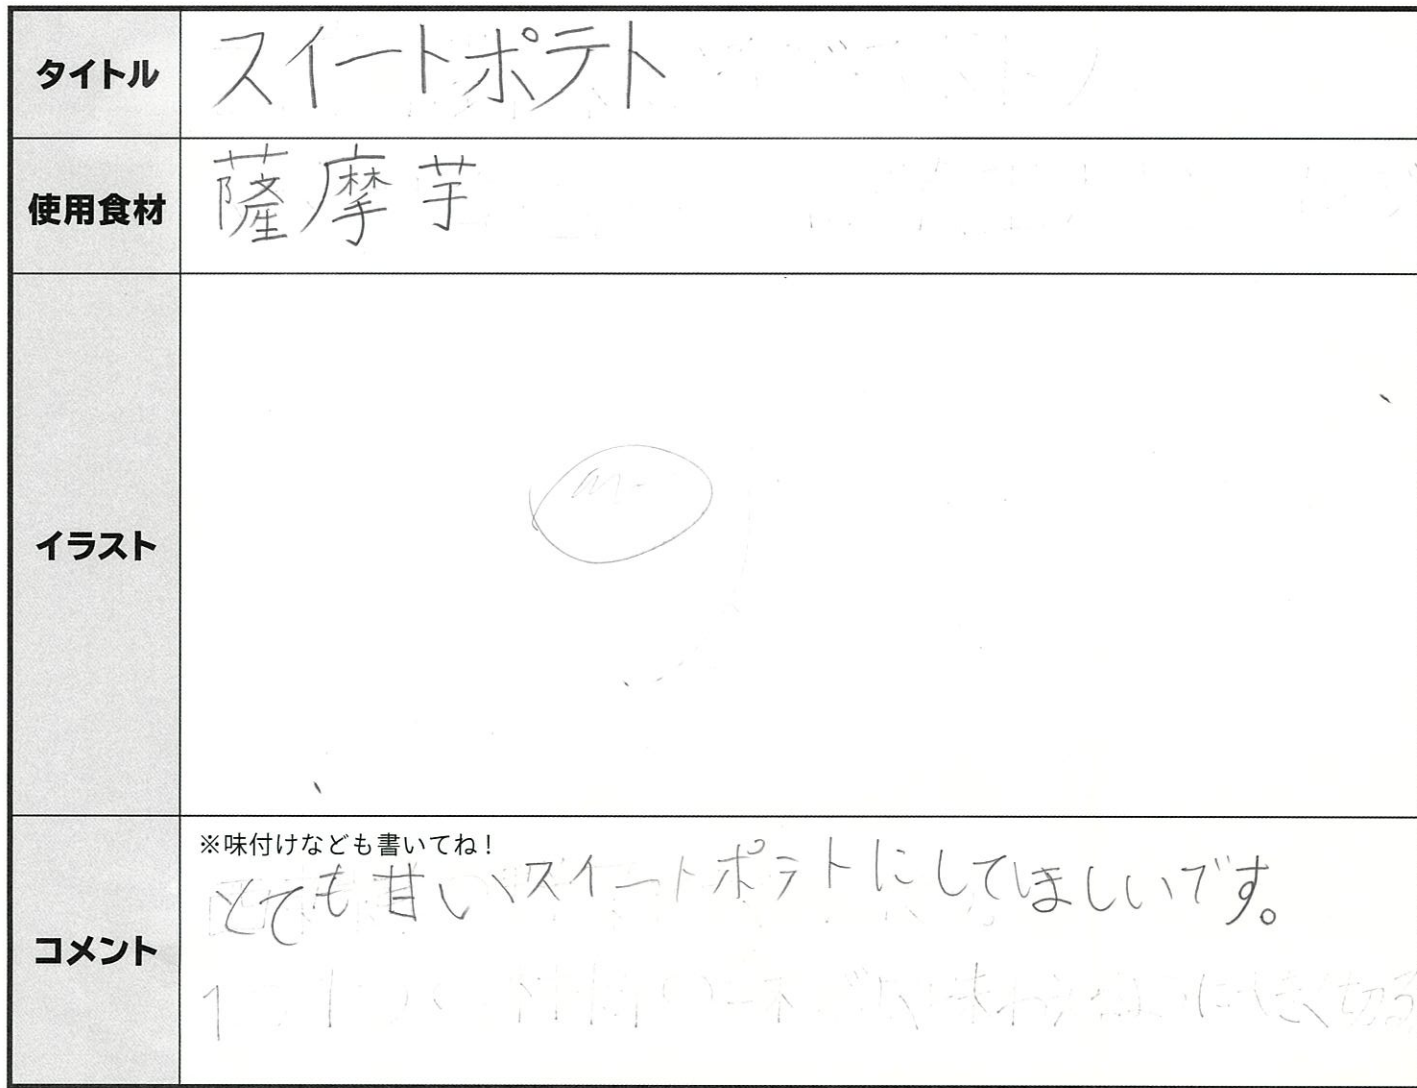 タイトル
スイートポテト
使用食材
薩摩芋
イラスト
コメント
※味付けなども書いてね！
とても甘いスイートポテトにしてほしいです。